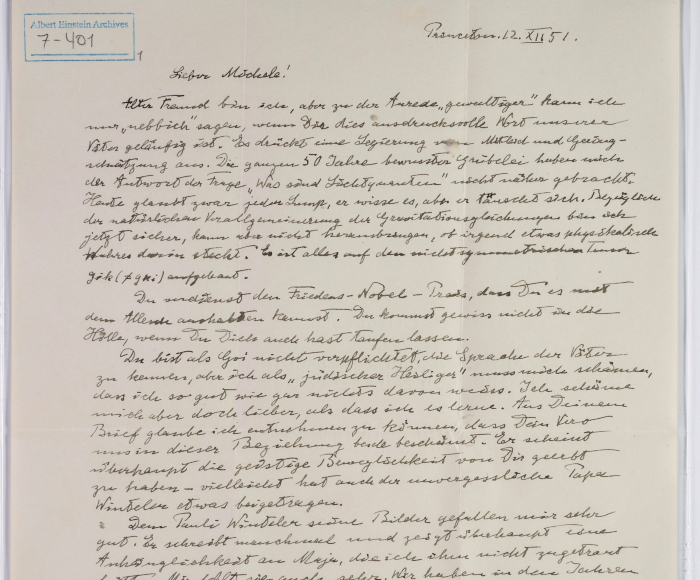 Albert Einstein Archives
7-401
1
Princeton. 12. XII 51.
Lieber Michele!
Alter Freund bin ich, aber zu der Anrede „gewaltiger" kann ich
nur „nebbich" sagen, wenn Dir dies ausdrucksvolle Wort unserer
Väter geläufig ist. Es drückt eine Legierung von Mitleid und Gering-
schätzung aus. Die ganzen 50 Jahre bewusster Grübelei haben mich
der Antwort der Frage „Was sind Lichtquanten" nicht näher gebracht.
Heute glaubt zwar jeder Lump, er wisse es, aber er täuscht sich. Bezüglich
der natürlichen Verallgemeinerung der Gravitationsgleichungen bin ich
jetzt sicher, kann aber nicht herausbringen, ob irgend etwas physikalisch
Wahres darin steckt. Es ist alles auf den nichtsymmetrischen Tensor
gik (≠ gki) aufgebaut.
Du verdienst den Friedens-Nobel-Preis, dass Du es mit
dem Allende aushalten kannst. Du kommst gewiss nicht in die
Hölle, wenn Du Dich auch hast taufen lassen.
Du bist als Goi nicht verpflichtet, die Sprache der Väter
zu kennen, aber ich als „jüdischer Heiliger" muss mich schämen,
dass ich so gut wie gar nichts davon weiss. Ich schäme
mich aber doch lieber, als dass ich es lerne. Aus Deinem
Brief glaube ich entnehmen zu können, dass Dein Vero
uns in dieser Beziehung beide beschämt. Er scheint
überhaupt die geistige Beweglichkeit von Dir geerbt
zu haben – vielleicht hat auch der unvergessliche Papa
Winteler etwas beigetragen.
Dem Pauli Winteler seine Bilder gefallen mir sehr
gut. Er schreibt manchmal und zeigt überhaupt eine
Anhänglichkeit an Maja, die ich ihm nicht zugetraut
sehr. Wir haben in den Jahren